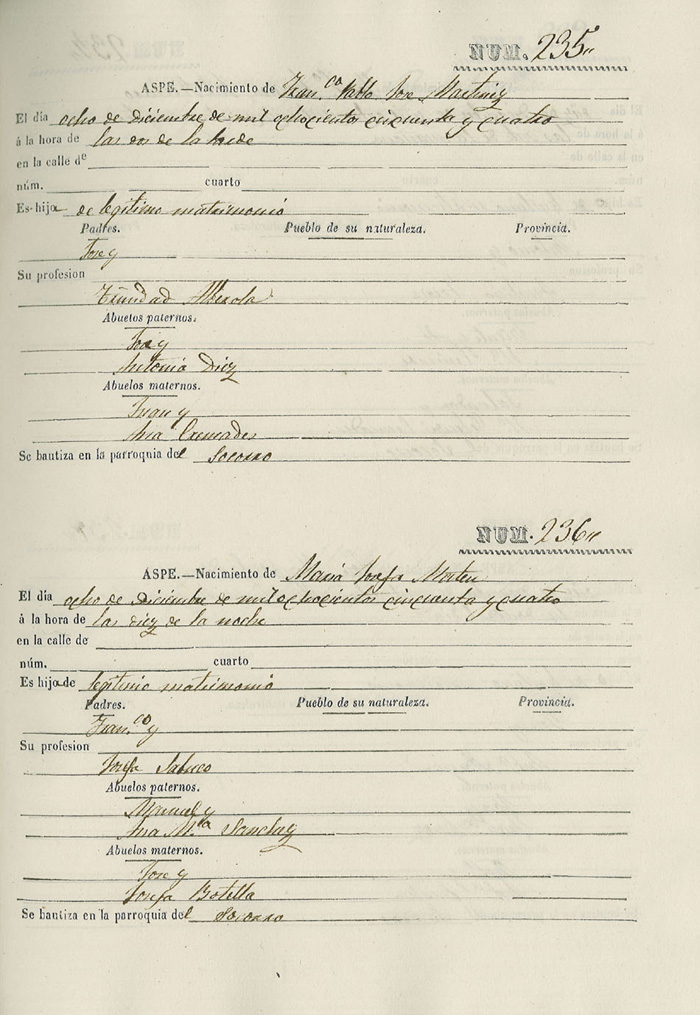 NUM. 235"
ASPE.—Nacimiento de Fran.co Pablo Jose Martinez
El dia ocho de diciembre de mil ochocientos cincuenta y cuatro
á la hora de las dos de la tarde
en la calle de
núm. cuarto
Es hijo de legitimo matrimonio
Padres. Pueblo de su naturaleza. Provincia.
Jose y
Su profesion
Trinidad Alberola
Abuelos paternos.
Jose y
Antonia Diez
Abuelos maternos.
Juan y
Ana Cremades
Se bautiza en la parroquia del Socorro
NUM. 236"
ASPE.—Nacimiento de Maria Josefa
El dia ocho de diciembre de mil ochocientos cincuenta y cuatro
á la hora de las diez de la noche
en la calle de
núm. cuarto
Es hija de legitimo matrimonio
Padres. Pueblo de su naturaleza. Provincia.
Fran.co y
Su profesion
Josefa
Abuelos paternos.
Manuel y
Ana M.a Sanchez
Abuelos maternos.
Jose y
Josefa Botella
Se bautiza en la parroquia del Socorro